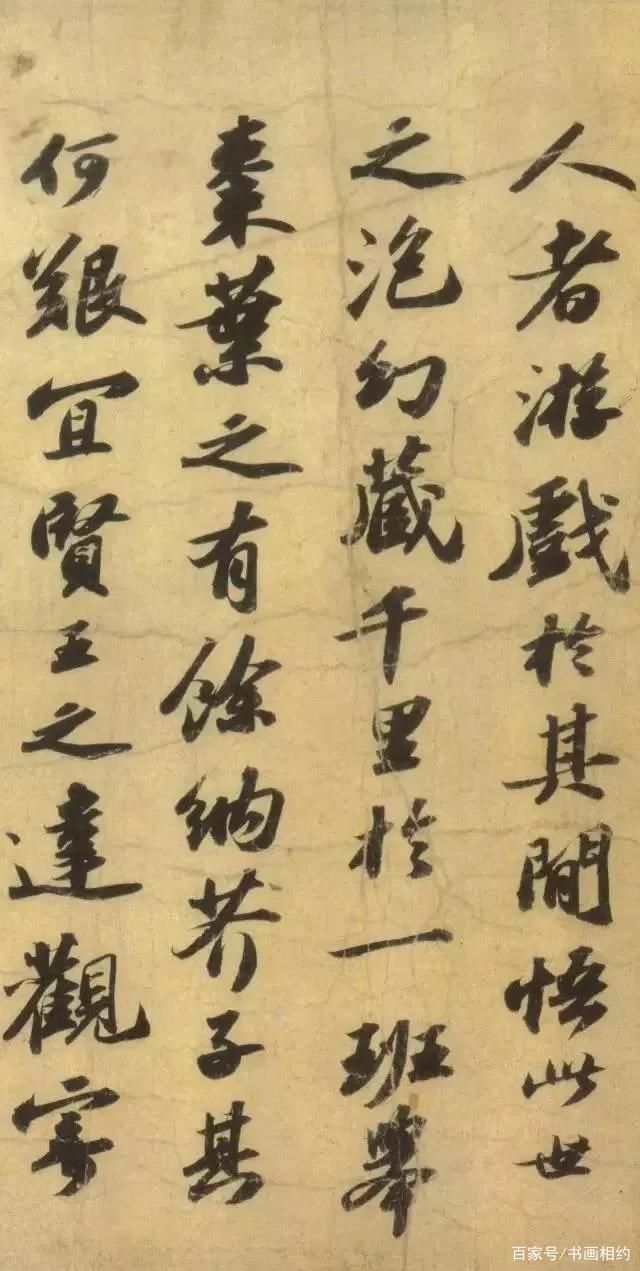 人者游戲於其閒悟此世
之泡幻藏千里於一班舉
棗葉之有餘納芥子其
何艱宜賢王之達觀寄
百家号/书画相约